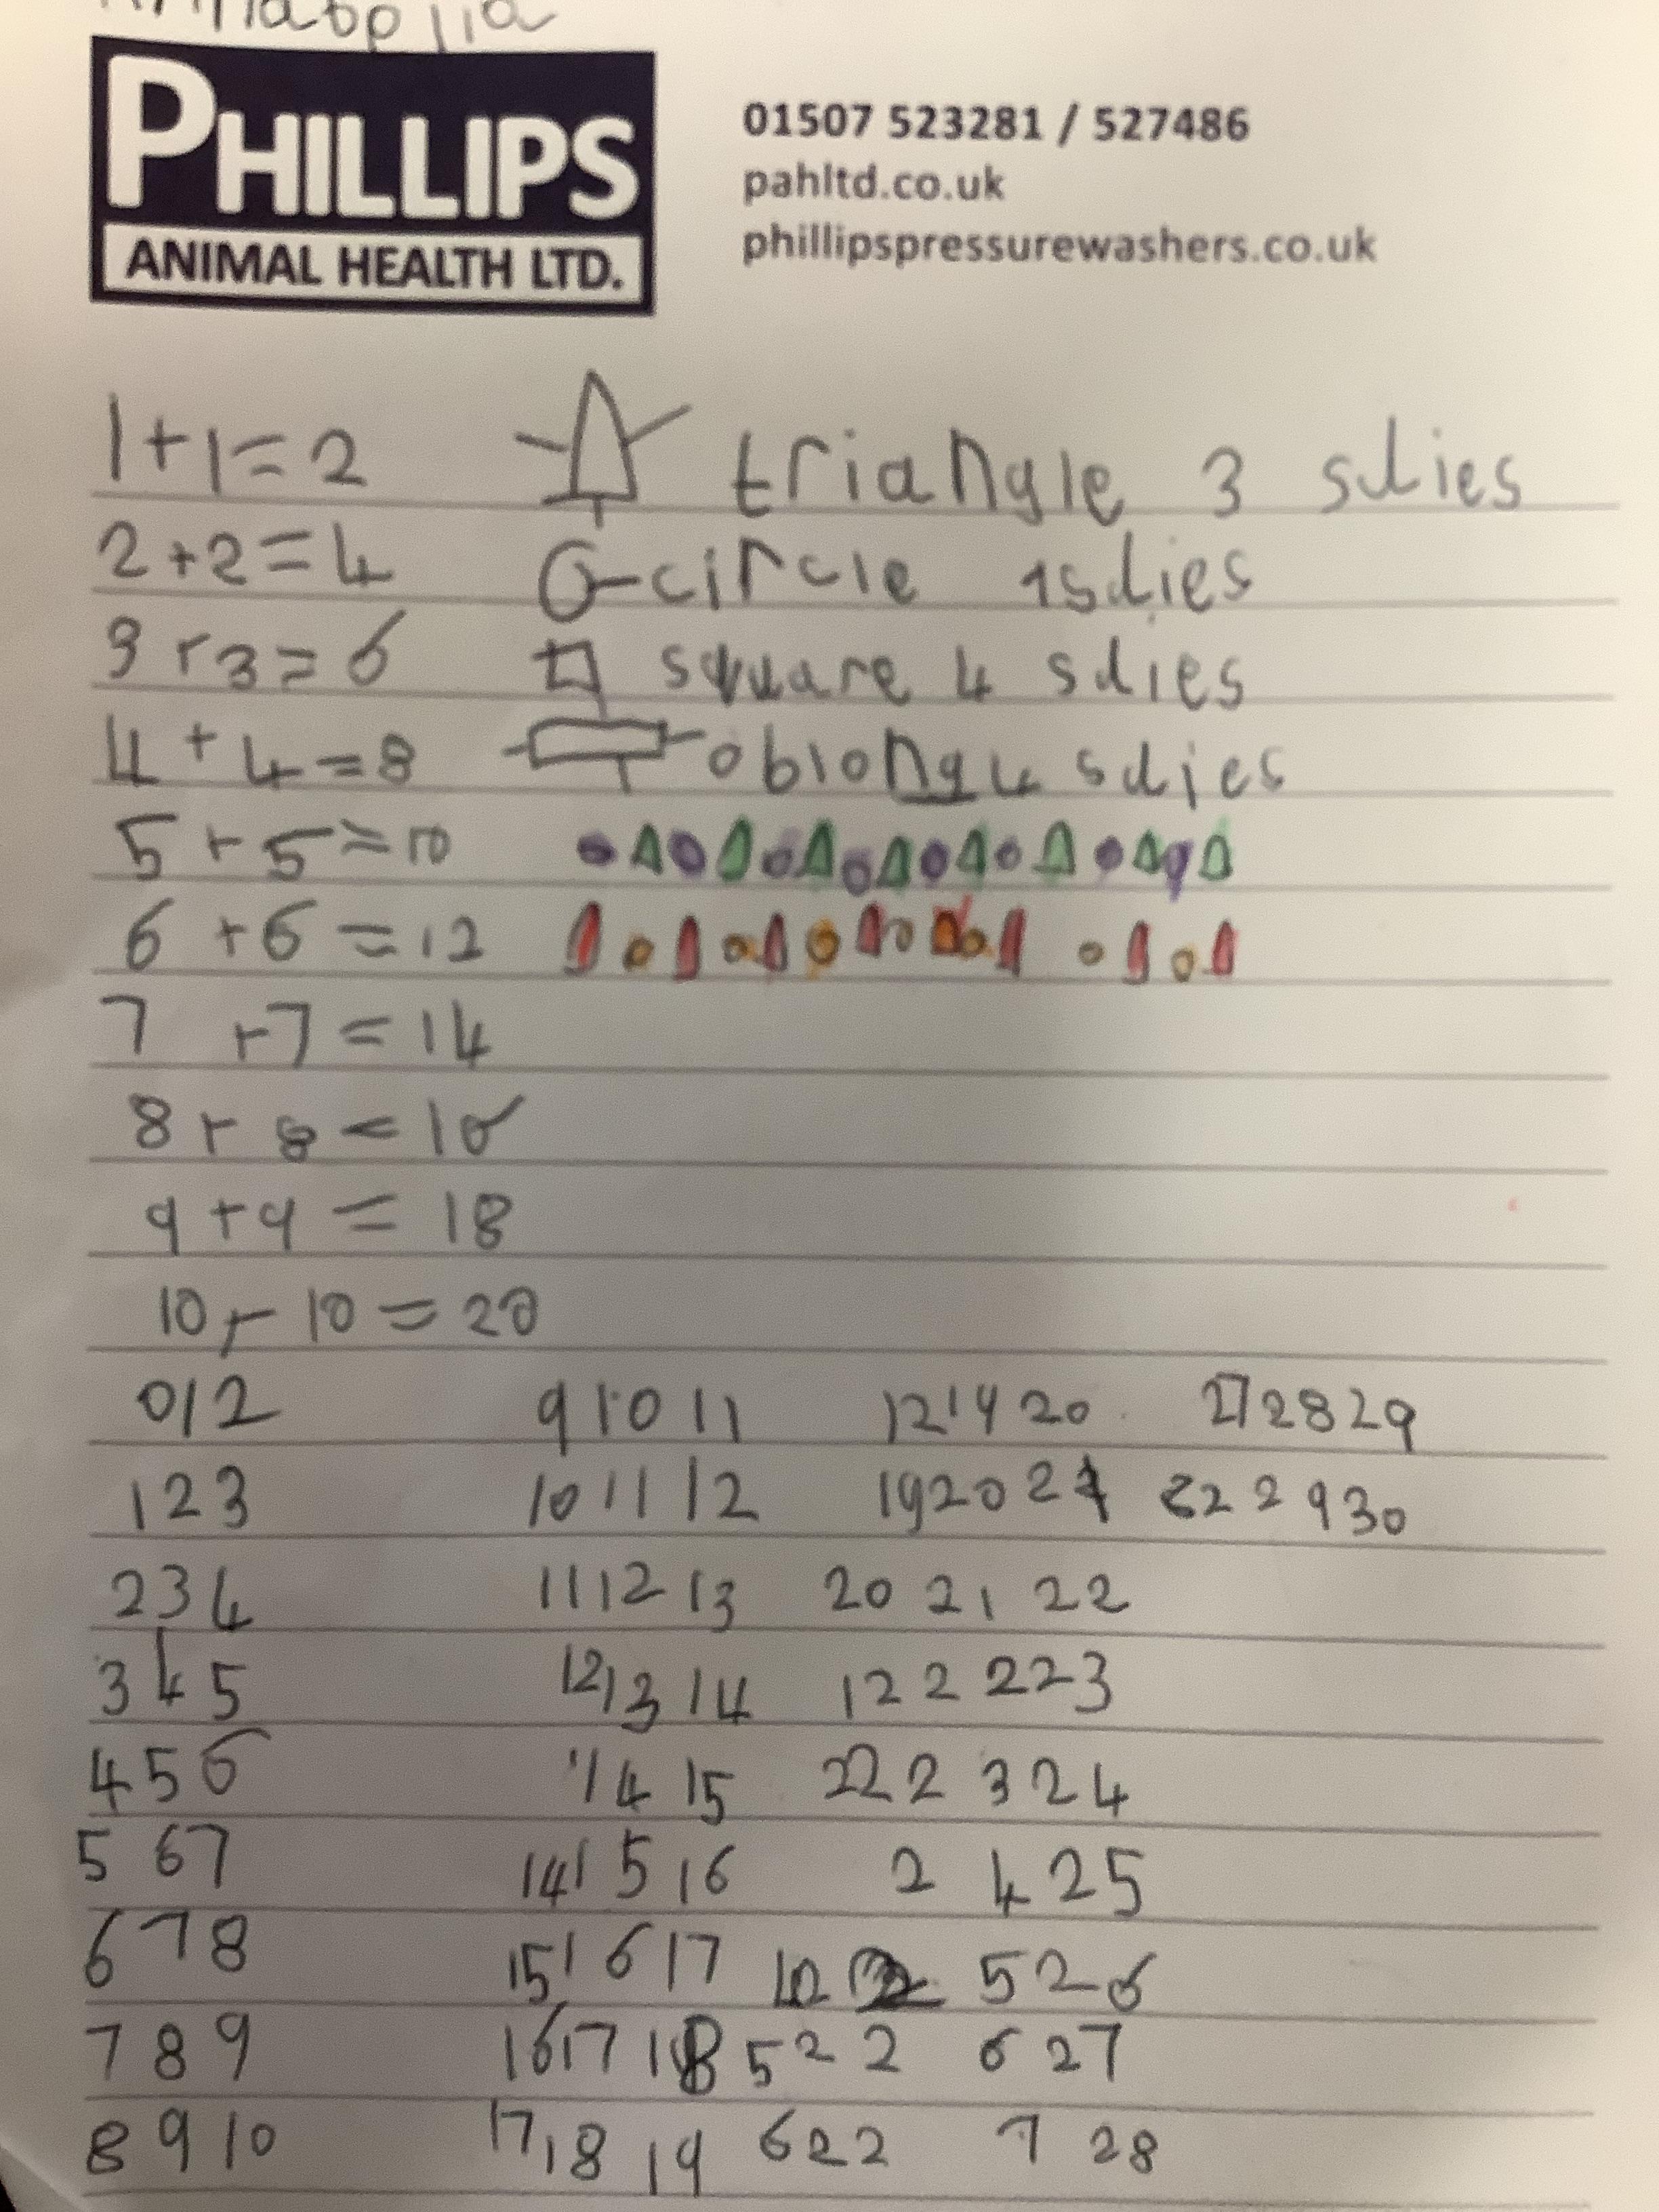 PHILLIPS
ANIMAL HEALTH LTD.
01507 523281 / 527486
pahltd.co.uk
phillipspressurewashers.co.uk
1+1=2 triangle 3 sdies
2+2=4 circle 1sdies
3+3=6 square 4 sdies
4+4=8 oblong 4 sdies
5+5=10
6+6=12
7+7=14
8+8=16
9+9=18
10+10=20
012 9 10 11 12 19 20 27 28 29
123 10 11 12 19 20 21 22 9 30
234 11 12 13 20 21 22
345 12 13 14 122 223
456 14 15 222 324
5 67 14 15 16 2 425
678 15 16 17 526
789 16 17 18 522 627
8 9 10 17 18 19 622 7 28